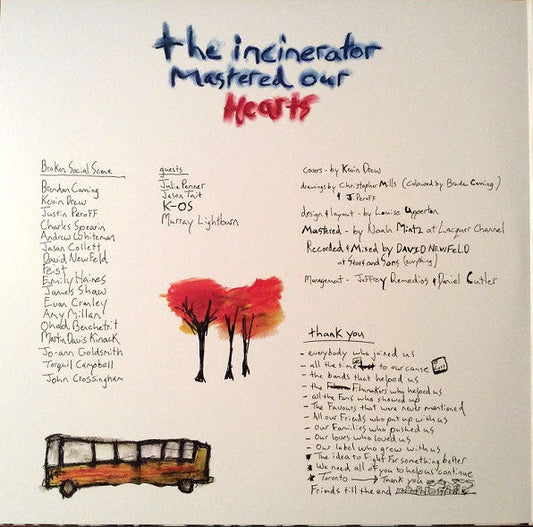 the incinerator
Mastered our
Hearts
Broken Social Scene
Brendan Canning
Kevin Drew
Justin Peroff
Charles Spearin
Andrew Whiteman
Jason Collett
David Newfeld
Feist
Emily Haines
James Shaw
Evan Cranley
Amy Millan
Ohad Benchetrit
Martin Davis Kinack
Jo-ann Goldsmith
Torquil Campbell
John Crossingham
guests
Julie Penner
Jason Tait
K-OS
Murray Lightburn
covers - by Kevin Drew
drawings by Christopher Mills (coloured by Brendan Canning)
& J Peroff
design & layout - by Louise Upperton
Mastered - by Noah Mintz at Lacquer Channel
Recorded & Mixed by DAVID NEWFELD
at Stars and Sons (everything)
Management - Jeffrey Remedios & Daniel Cutler
thank you
- everybody who joined us
- all the time to our cause
- the bands that helped us
- the Filmmakers who helped us
- all the fans who showed up
- The Favours that were never mentioned
- All our Friends who put up with us
- Our Families who pushed us
- Our loves who loved us
- Our label who grew with us
* The idea to Fight for something better
* We need all of you to help us continue
* Toronto → Thank you
Friends till the end